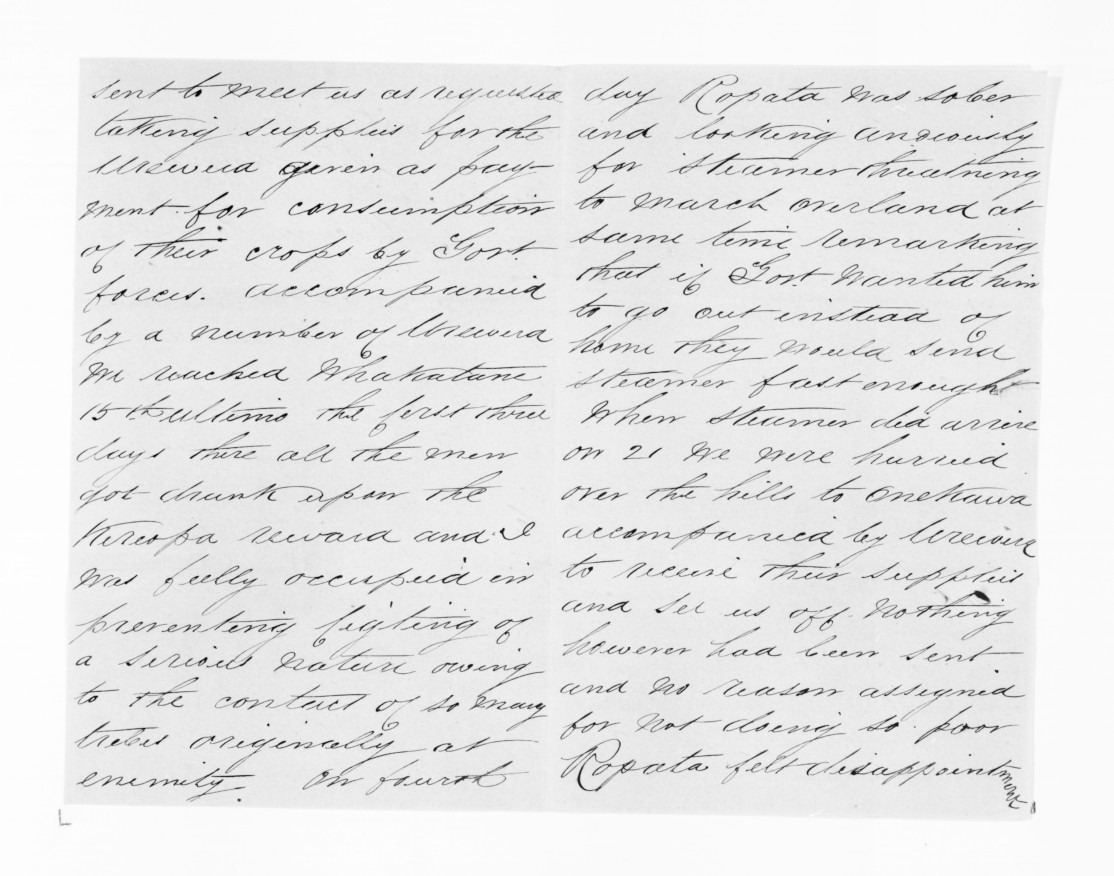 sent to meet us as requested
taking supplies for the
Urewera given as pay-
ment for consumption
of their crops by Govt.
forces. accompanied
by a number of Urewera
We reached Whakatane
15th ultimo the first three
days there all the men
got drunk upon the
Kereopa reward and I
was fully occupied in
preventing figting of
a serious nature owing
to the contact of so many
tribes originally at
enemity. On fourth
day Ropata was sober
and looking anxiously
for steamer threatning
to march overland at
same time remarking
that if Govt. wanted him
to go out instead of
home they would send
steamer fast enough
When steamer did arrive
on 21 We were hurried
over the hills to Onekawa
accompanied by Urewera
to receive their supplies
and see us off. Nothing
however had been sent
and no reason assigned
for not doing so. poor
Ropata felt disappointment